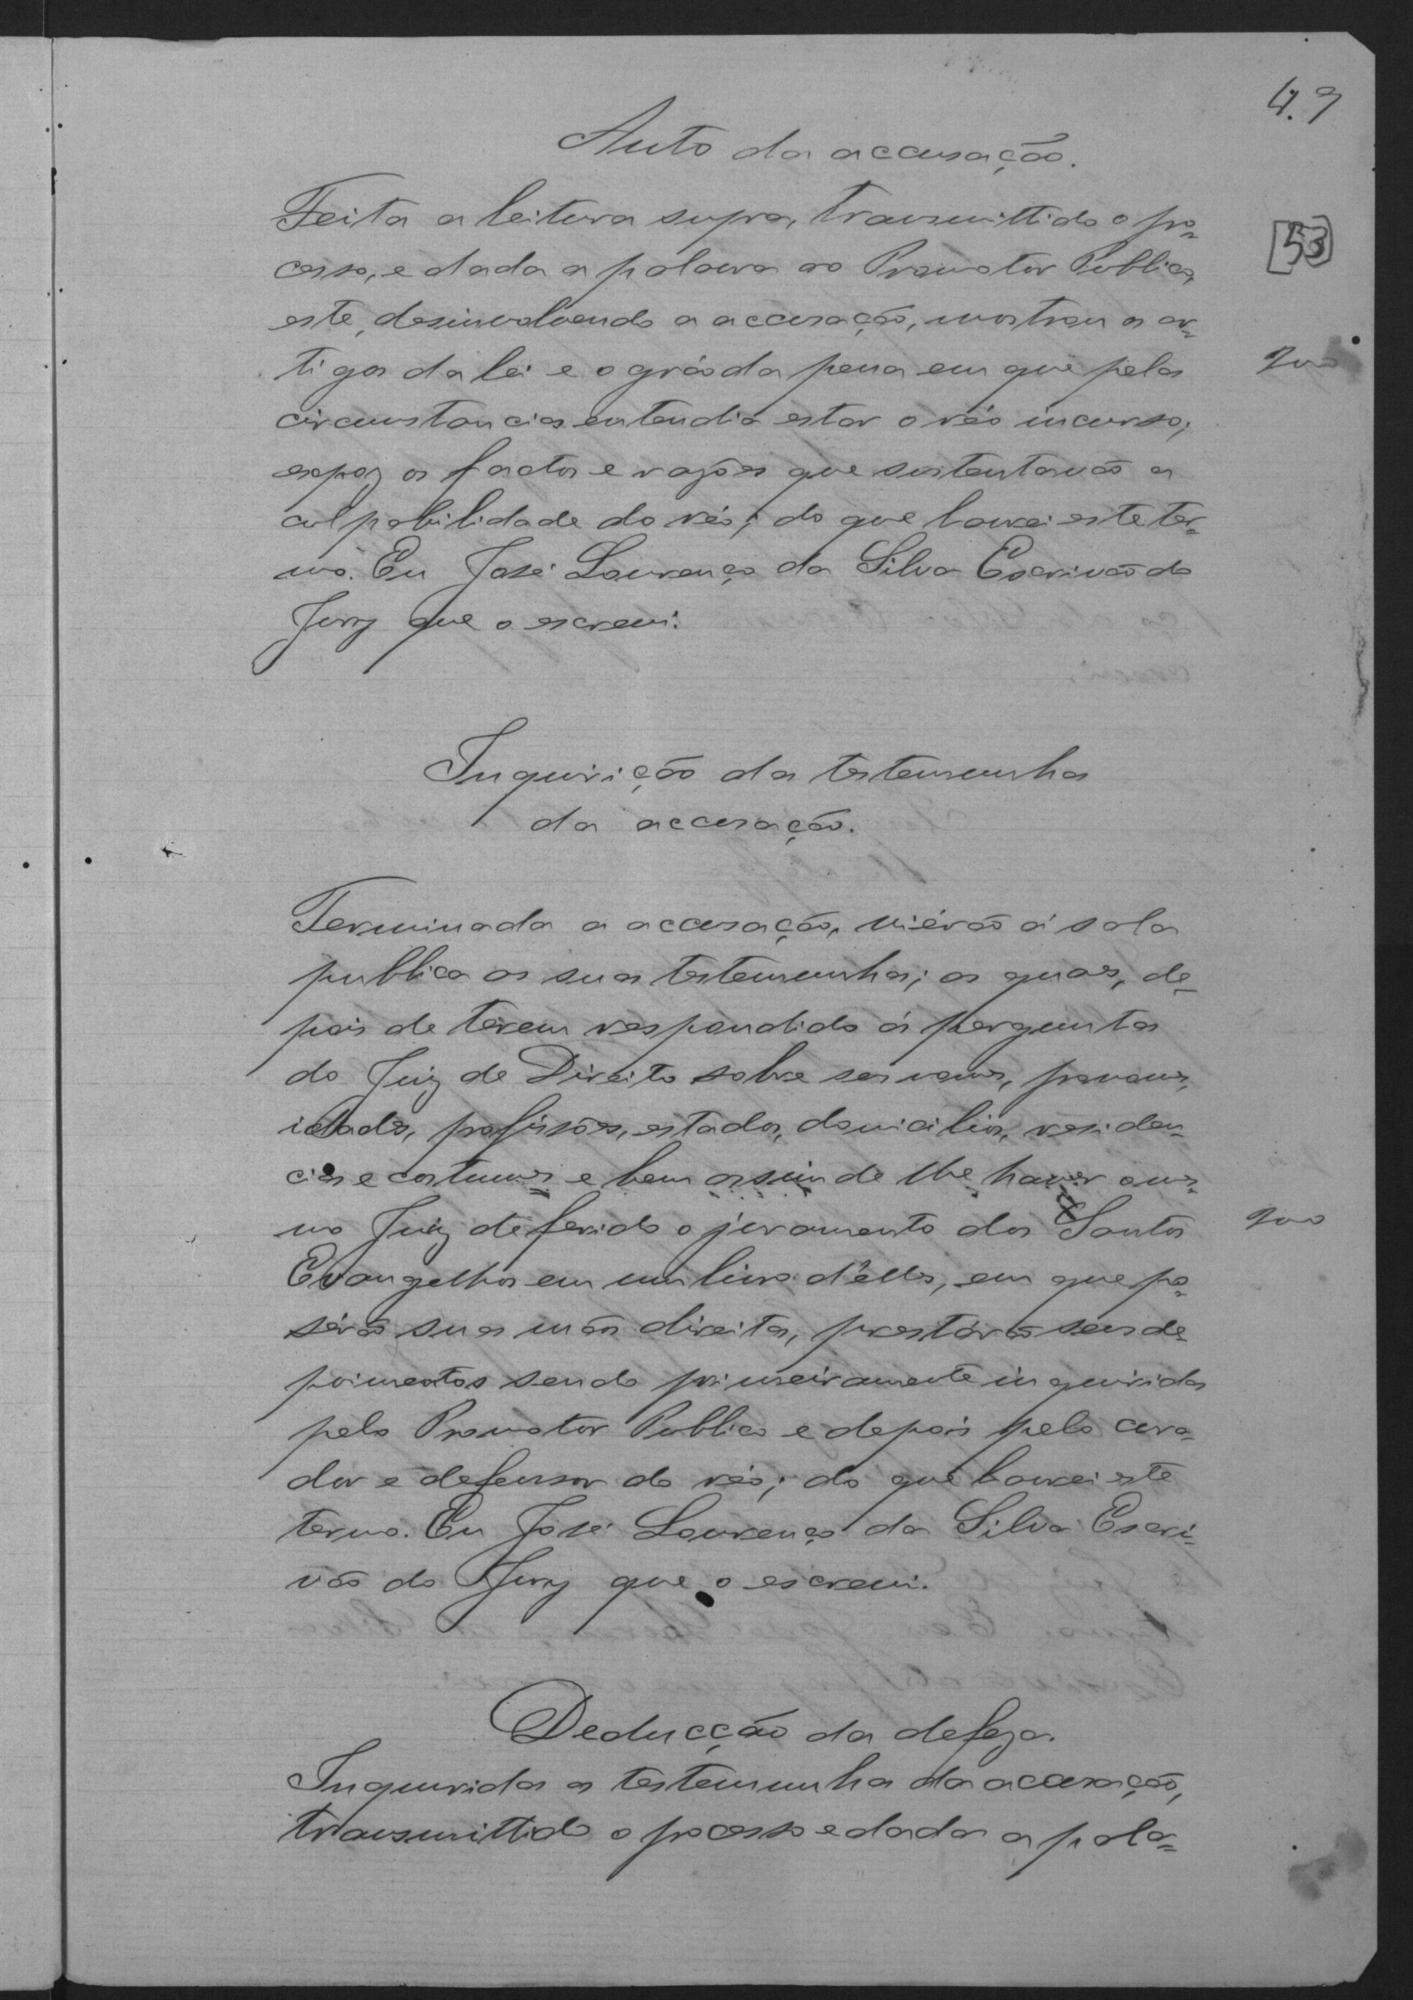 49
Auto da accusação.
Feita a leitura supra, transmittido o pro=
53
cesso, e dada a palavra ao Promotor Publico,
este, desinvolvendo a accusação, mostrou o ar=
tigos da lei e o gráo da pena em que pelas
200
circunstancias entendia estar o réo incurso;
expoz os factos e razões que sustentavão a
culpabilidade do réo; do que lavrei este ter=
mo. Eu José Lourenço da Silva Escrivão do
Jury que o escrevi.
Inquirição das testemunhas
da accusação.
Terminada a accusação, viérão á sala
publica as suas testemunhas; as quaes, de=
pois de terem respondido ás perguntas
do Juiz de Direito sobre seos nomes, pronomes,
idades, profissões, estados, domicilios, residen=
cias e costumes e bem assim de lhe haver o mes=
mo Juiz deferido o juramento dos Santos
200
Evangelhos em um livro d'elles, em que po=
sérão suas mãos direitas, prestárão seus de=
poimentos sendo primeiramente inquiridas
pelo Promotor Publico e depois pelo cura=
dor e defensor do réo; do que lavrei este
termo. Eu José Lourenço da Silva Escri=
vão do Jury que o escrevi.
Deducção da defeza.
Inquiridas as testemunhas da accusação,
transmittido o processo e dada a pala=